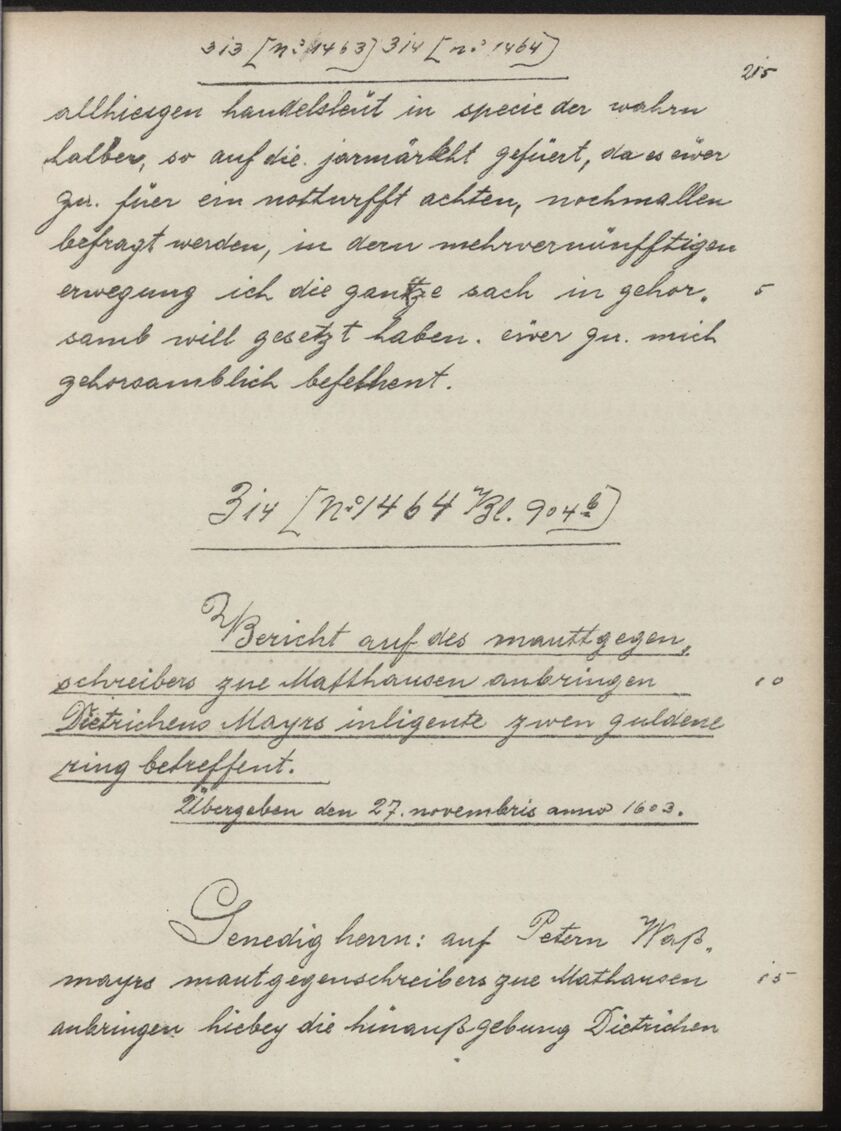 313 [No 1463] 314 [no 1464]
215
allhiesgen handelsleüt in specie der wahrn
halber, so auf die jarmärkht gefüert, da es eüer
gn. füer ein notturfft achten, nochmallen
befragt werden, in dern mehrvernünfftigen
erwegung ich die gantze sach in gehor„ 5
samb will gesetzt haben. eüer gn. mich
gehorsamblich befelhent.
314 [No 1464 Bl. 904b]
Bericht auf des mauttgegen„
schreibers zue Matthausen anbringen 10
Dietrichens Mayrs inligente zwen guldene
ring betreffent.
Übergeben den 27. novembris anno 1603.
Genedig herrn: auf Petern Waß„
mayrs mautgegenschreibers zue Mathausen 15
anbringen hiebey die hinaußgebung Dietrichen